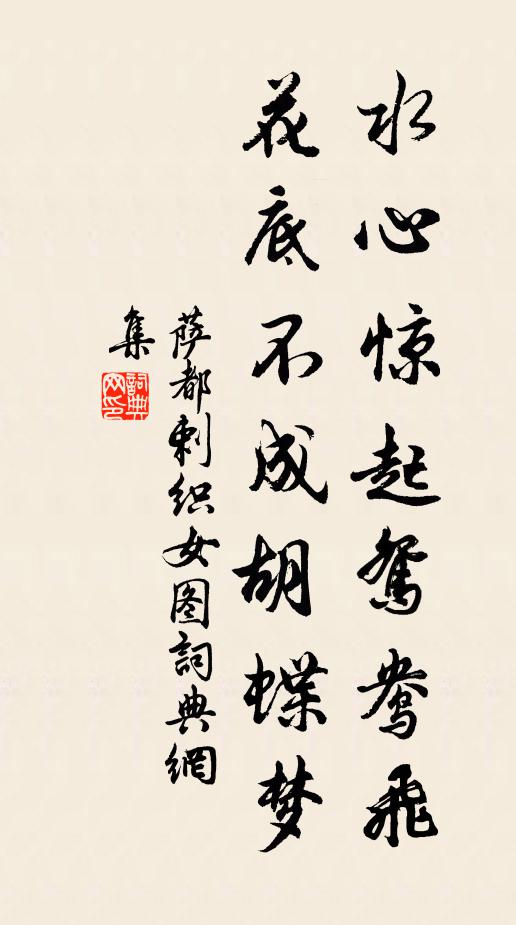 水心惊起鸳鸯飞
花底不成胡蝶梦
萨都剌织女图詞典網
集
詞典网印